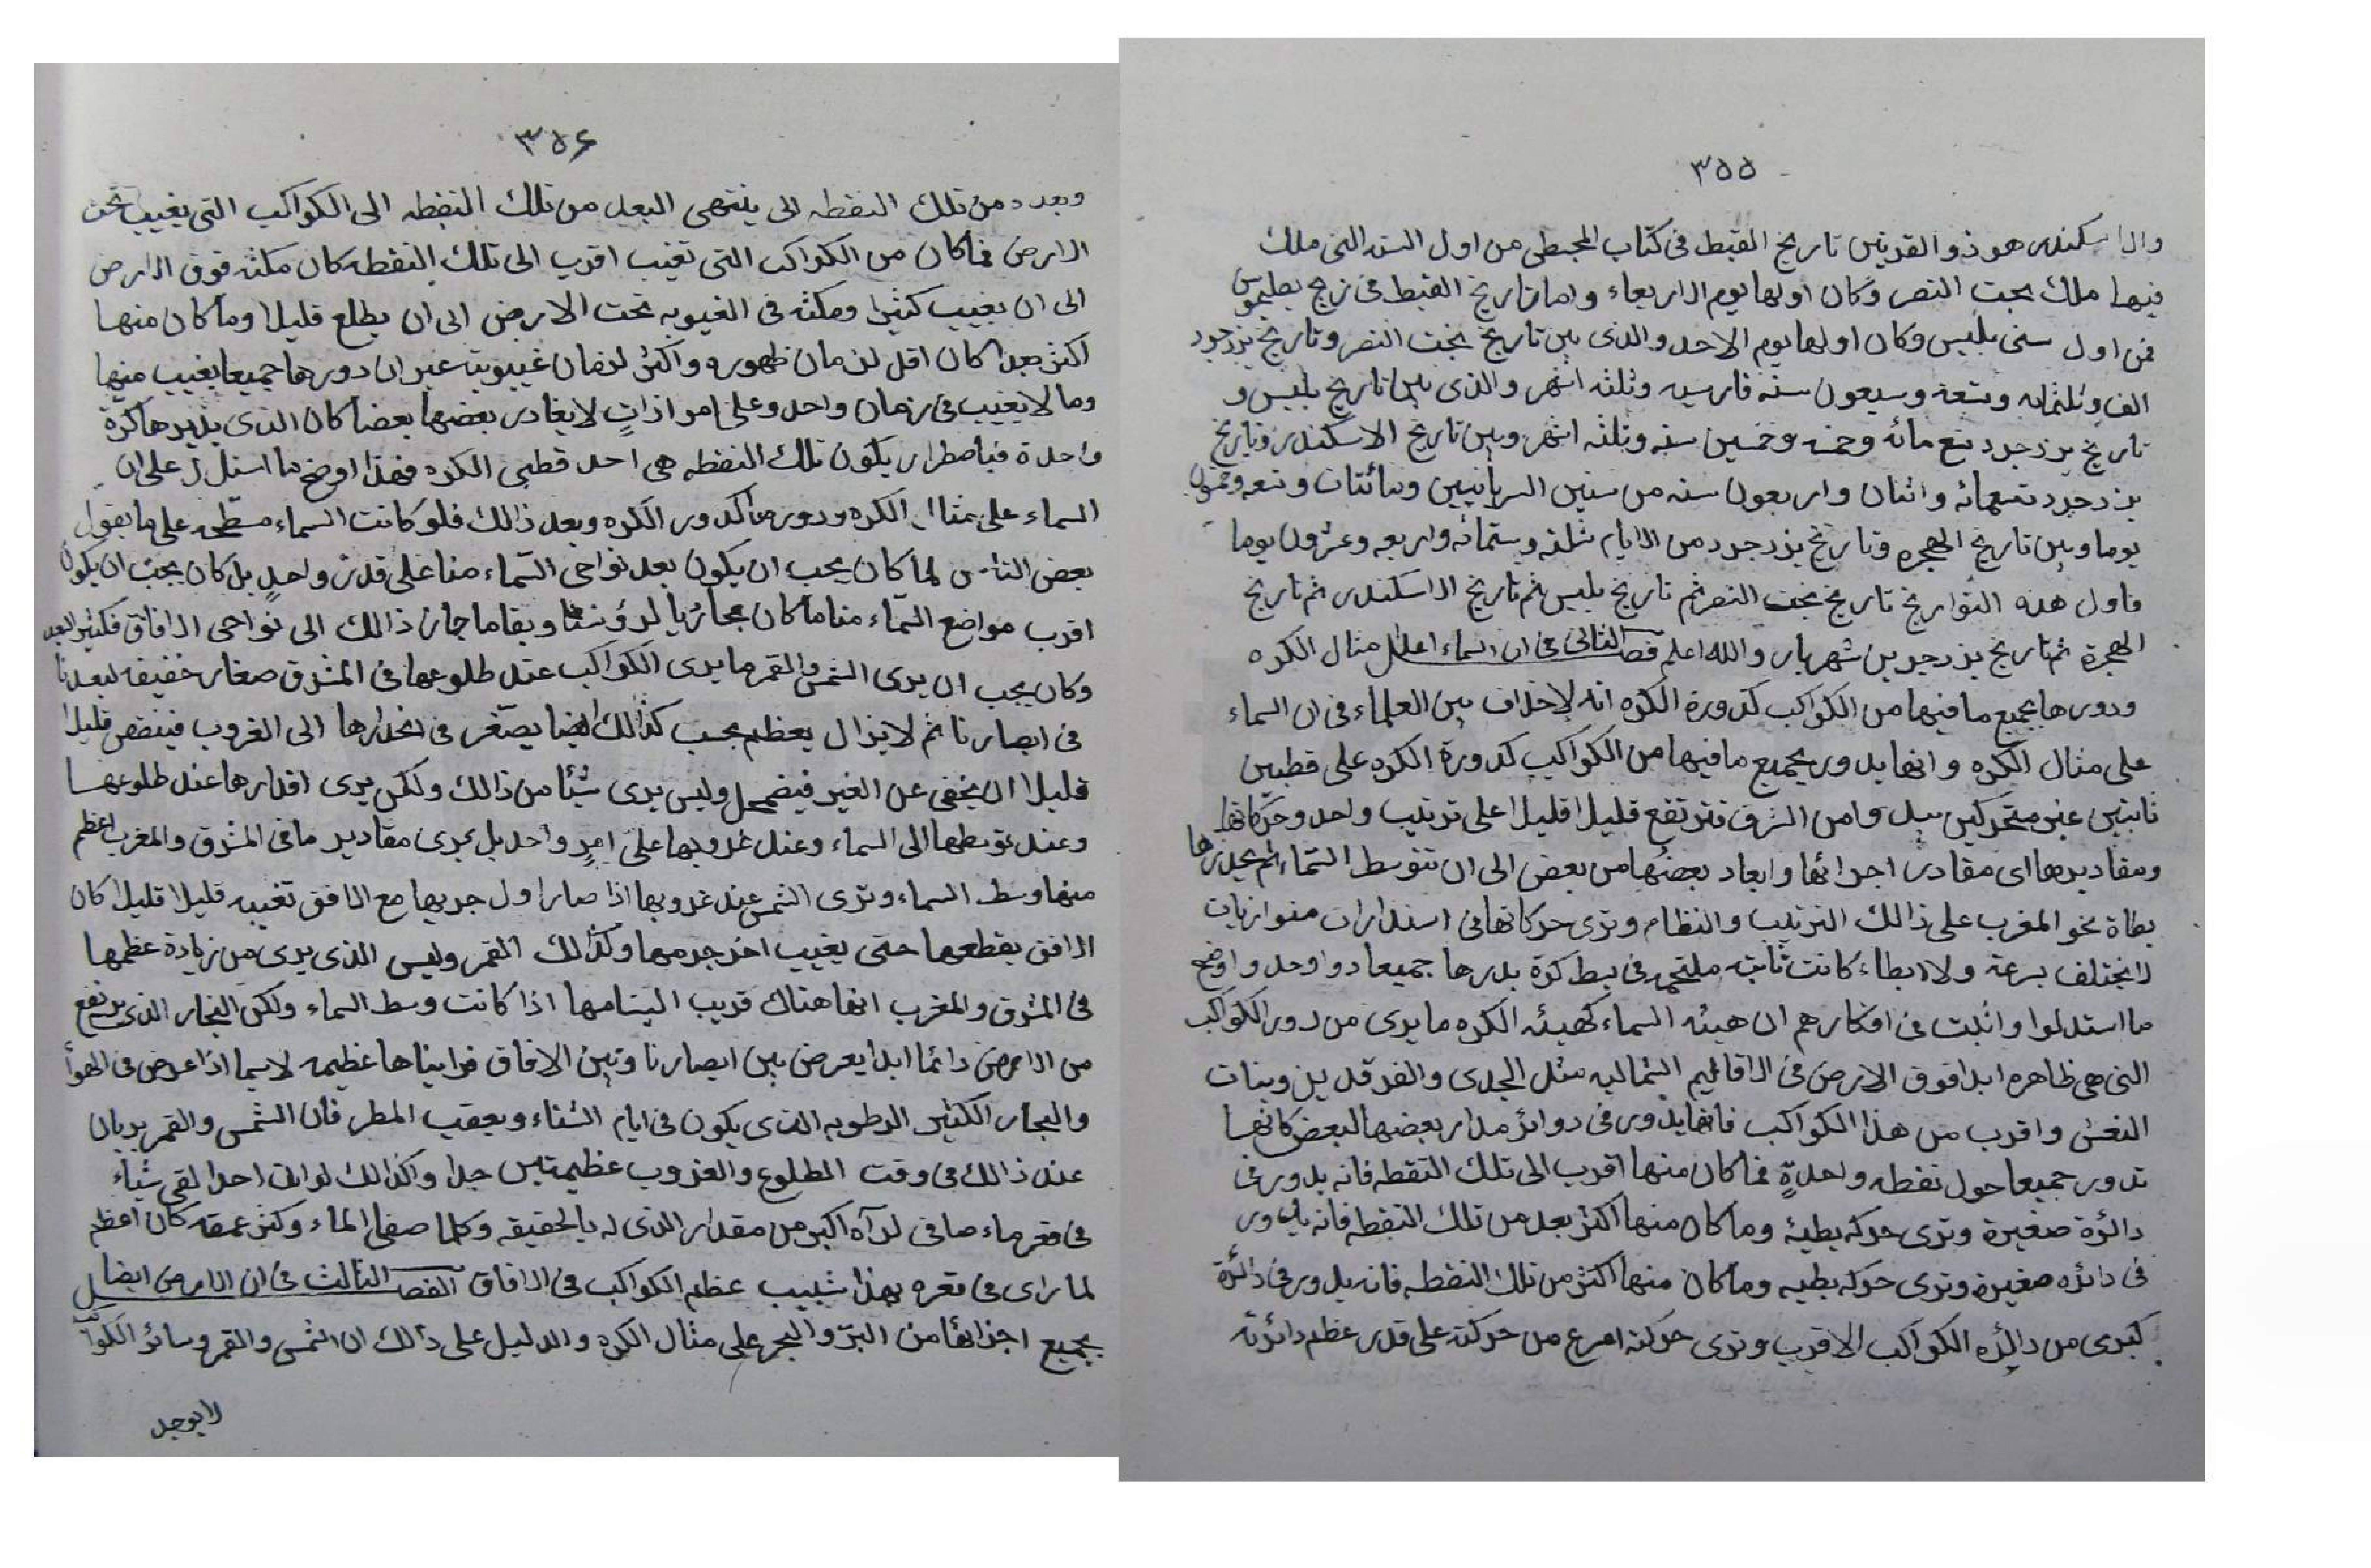 ٣٥٥
والاسكندر هو ذو القرنين تاريخ القبط فى كتاب المجبطى من اول السنه التى ملك
فيها ملك بخت النصر وكان اولها يوم الاربعاء واما تاريخ القبط فى زيج بطليموس
فمن اول سنى بلبس وكان اولها يوم الاحد والذى بين تاريخ بخت النصر وتاريخ يزدجرد
الف وثلثمايه وتسعة وسبعون سنة فارسيه وثلثه اشهر والذى بين تاريخ بلبس و
تاريخ يزدجرد تسع مائه وخمسه وخمسين سنه وثلثه اشهر وبين تاريخ الاسكندر وتاريخ
يزدجرد تسعمائه واثنان واربعون سنه من سنين السريانيين ومائتان وتسعه وخمسون
يوما وبين تاريخ الهجره وتاريخ يزدجرد من الايام ثلثه وستمائه واربعه وعشرون يوما
فاول هذه التواريخ تاريخ بخت النصر ثم تاريخ بلبس ثم تاريخ الاسكندر ثم تاريخ
الهجرة ثم تاريخ يزدجرد بن شهريار والله اعلم فصل الثانى فى ان السماء على مثال الكره
ودورها بجميع ما فيها من الكواكب كدورة الكره انه لاخلاف بين العلماء فى ان السماء
على مثال الكره وانها يدور بجميع ما فيها من الكواكب كدورة الكره على قطبين
ثابتين غير متحركين يبدوا من الشرق فترتفع قليلا قليلا على ترتيب واحد وحركاتها
ومقاديرها اى مقادير اجرائها وابعاد بعضها من بعض الى ان تتوسط السماء ثم يحدرها
بطاة نحو المغرب على ذالك الترتيب والنظام وترى حركاتها فى استدارات متوازيات
لا يختلف بسرعة ولا ابطاء كانت ثابته ملتحمه فى بسط كرة يدرها جميعا دوا وحد واوضح
ما استدلوا واثبت فى افكارهم ان هيئه السماء كهيئه الكره ما يرى من دور الكواكب
التى هى ظاهره ابدا فوق الارض فى الاقاليم الشماليه مثل الجدى والفرقدين وبنات
النعش واقرب من هذا الكواكب فانها يدور فى دوائر مدار بعضها لبعض كانها
تدور جميعا حول نقطه واحدةٍ فما كان منها اقرب الى تلك النقطه فانه يدور فى
دائرة صغيرة وترى حركه بطيئه وما كان منها اكثر بعد من تلك النقطه فانه يدور
فى دائره صغيرة وترى حركه بطيه وما كان منها اكثر من تلك النقطه فانه يدور فى دائرة
كبرى من دائره الكواكب الاقرب وترى حركته اسرع من حركته على قدر عظم دائرته
٣٥٤
وبعده من تلك النقطه الى ينتهى البعد من تلك النقطه الى الكواكب التى يغيب تحت
الارض فما كان من الكواكب التى تغيب اقرب الى تلك النقطه كان مكثه فوق الارض
الى ان يغيب كثيرا ومكثه فى الغيوبه تحت الارض الى ان يطلع قليلا وما كان منها
اكثر بعدا كان اقل لزمان ظهوره واكثر لزمان غيبوبته غير ان دورها جميعا يغيب منها
وما لا يغيب فى زمان واحد وعلى امواذاتٍ لا يغادر بعضها بعضا كان الذى يديرها كرة
واحدة فباضطرار يكون تلك النقطه هى احد قطبى الكره فهذا اوضح ما استدل على ان
السماء على مثال الكره ودورها كدور الكره وبعد ذالك فلو كانت السماء مسطحه على ما يقول
بعض الناس لما كان يجب ان يكون بعد نواحى السماء منا على قدر واحدٍ بل كان يجب ان يكون
اقرب مواضع السماء منا ما كان محاذيا لرؤسنا وبقا ما جاز ذالك الى نواحى الافاق فكثير البعد
وكان يجب ان يرى الشمس والقمر ما يرى الكواكب عند طلوعها فى المشرق صغار خفيفه لبعدنا
فى ابصارنا ثم لا يزال يعظم بحسب كذالك ايضا يصغر فى انحدارها الى الغروب فينقص قليلا
قليلا ان يخفى عن الغير فيضمحل وليس يرى شيئا من ذالك ولكن يرى اقدارها عند طلوعها
وعند توسطها الى السماء وعند غروبها على امرٍ واحد بل يرى مقادير ما فى المشرق والمغرب اعظم
منها وسط السماء وترى الشمس عند غروبها اذا صار اول جربها مع الافق تغيبه قليلا قليلا كان
الافق يقطعها حتى يغيب اخر جرمها وكذالك القمر وليس الذى يرى من زيادة عظمها
فى المشرق والمغرب انها هناك قريب الينا مها اذا كانت وسط السماء ولكن البخار الذى يرتفع
من الارض دائما ابدا يعرض بين ابصارنا وبين الافاق فراينا ها عظيمه لاسيما اذا عرض فى الهوأ
والبحار الكثير الرطوبه الذى يكون فى ايام الشتاء وبعقب المطر فان الشمس والقمر يريان
عند ذالك فى وقت الطلوع والغروب عظيمتين جدا وكذالك لو ان احدا لقى شياء
فى مقر ماء صافى لرآه اكبر من مقدار الذى له بالحقيقه وكلما صفا الماء وكثر عمقه كان اعظم
لما راى فى قعره بهذا شبيب عظم الكواكب فى الافاق الفصل الثالث فى ان الارض ايضا
بجميع اجزائها من البرّ والبحر على مثال الكره والدليل على ذالك ان الشمس والقمر وسائر الكواكب
لا يوجد